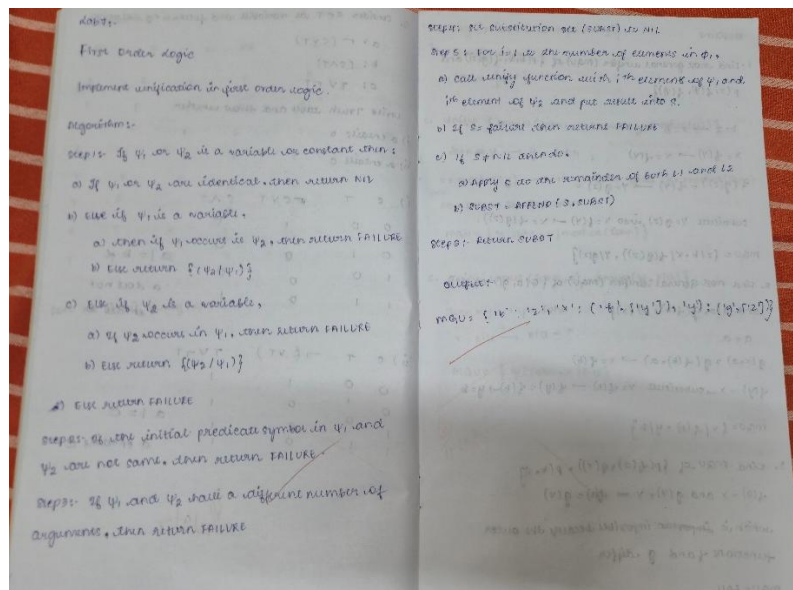 LAB7:-
First Order Logic
Implement unification in first order logic.
Algorithm:-
Step1:- If ψ1 or ψ2 is a variable or constant then:
a) If ψ1 or ψ2 are identical, then return NIL
b) Else if ψ1 is a variable,
a) then if ψ1 occurs in ψ2, then return FAILURE
b) Else return {(ψ2/ψ1)}
c) Else if ψ2 is a variable,
a) If ψ2 occurs in ψ1, then return FAILURE
b) Else return {(ψ2/ψ1)}
d) Else return FAILURE
Step2:- If the initial predicate symbol in ψ1 and
ψ2 are not same, then return FAILURE.
Step3:- If ψ1 and ψ2 have a different number of
arguments, then return FAILURE
Step4:- Set substitution set (SUBST) to NIL
Step5:- For i=1 to the number of elements in ψ1,
a) call unify function with ith element of ψ1 and
ith element of ψ2 and put result into S.
b) If S= failure then returns FAILURE
c) If S≠NIL then do,
a) Apply S to the remainder of both L1 and L2
b) SUBST = APPEND(S, SUBST)
Step6:- Return SUBST
Output:-
MGU = { 'b' 'z', 'x': ('f', ['y']), 'y': ('g', ['z'])}